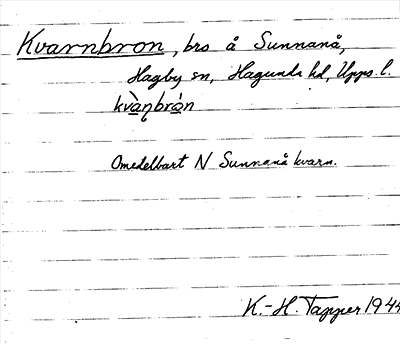 Kvarnbron, bro å Sunnanå,
Hagby sn, Hagunda hd, Upps. l.
kvàṇbrón
Omedelbart N Sunnanå kvarn.
K.-H. Tapper 1944